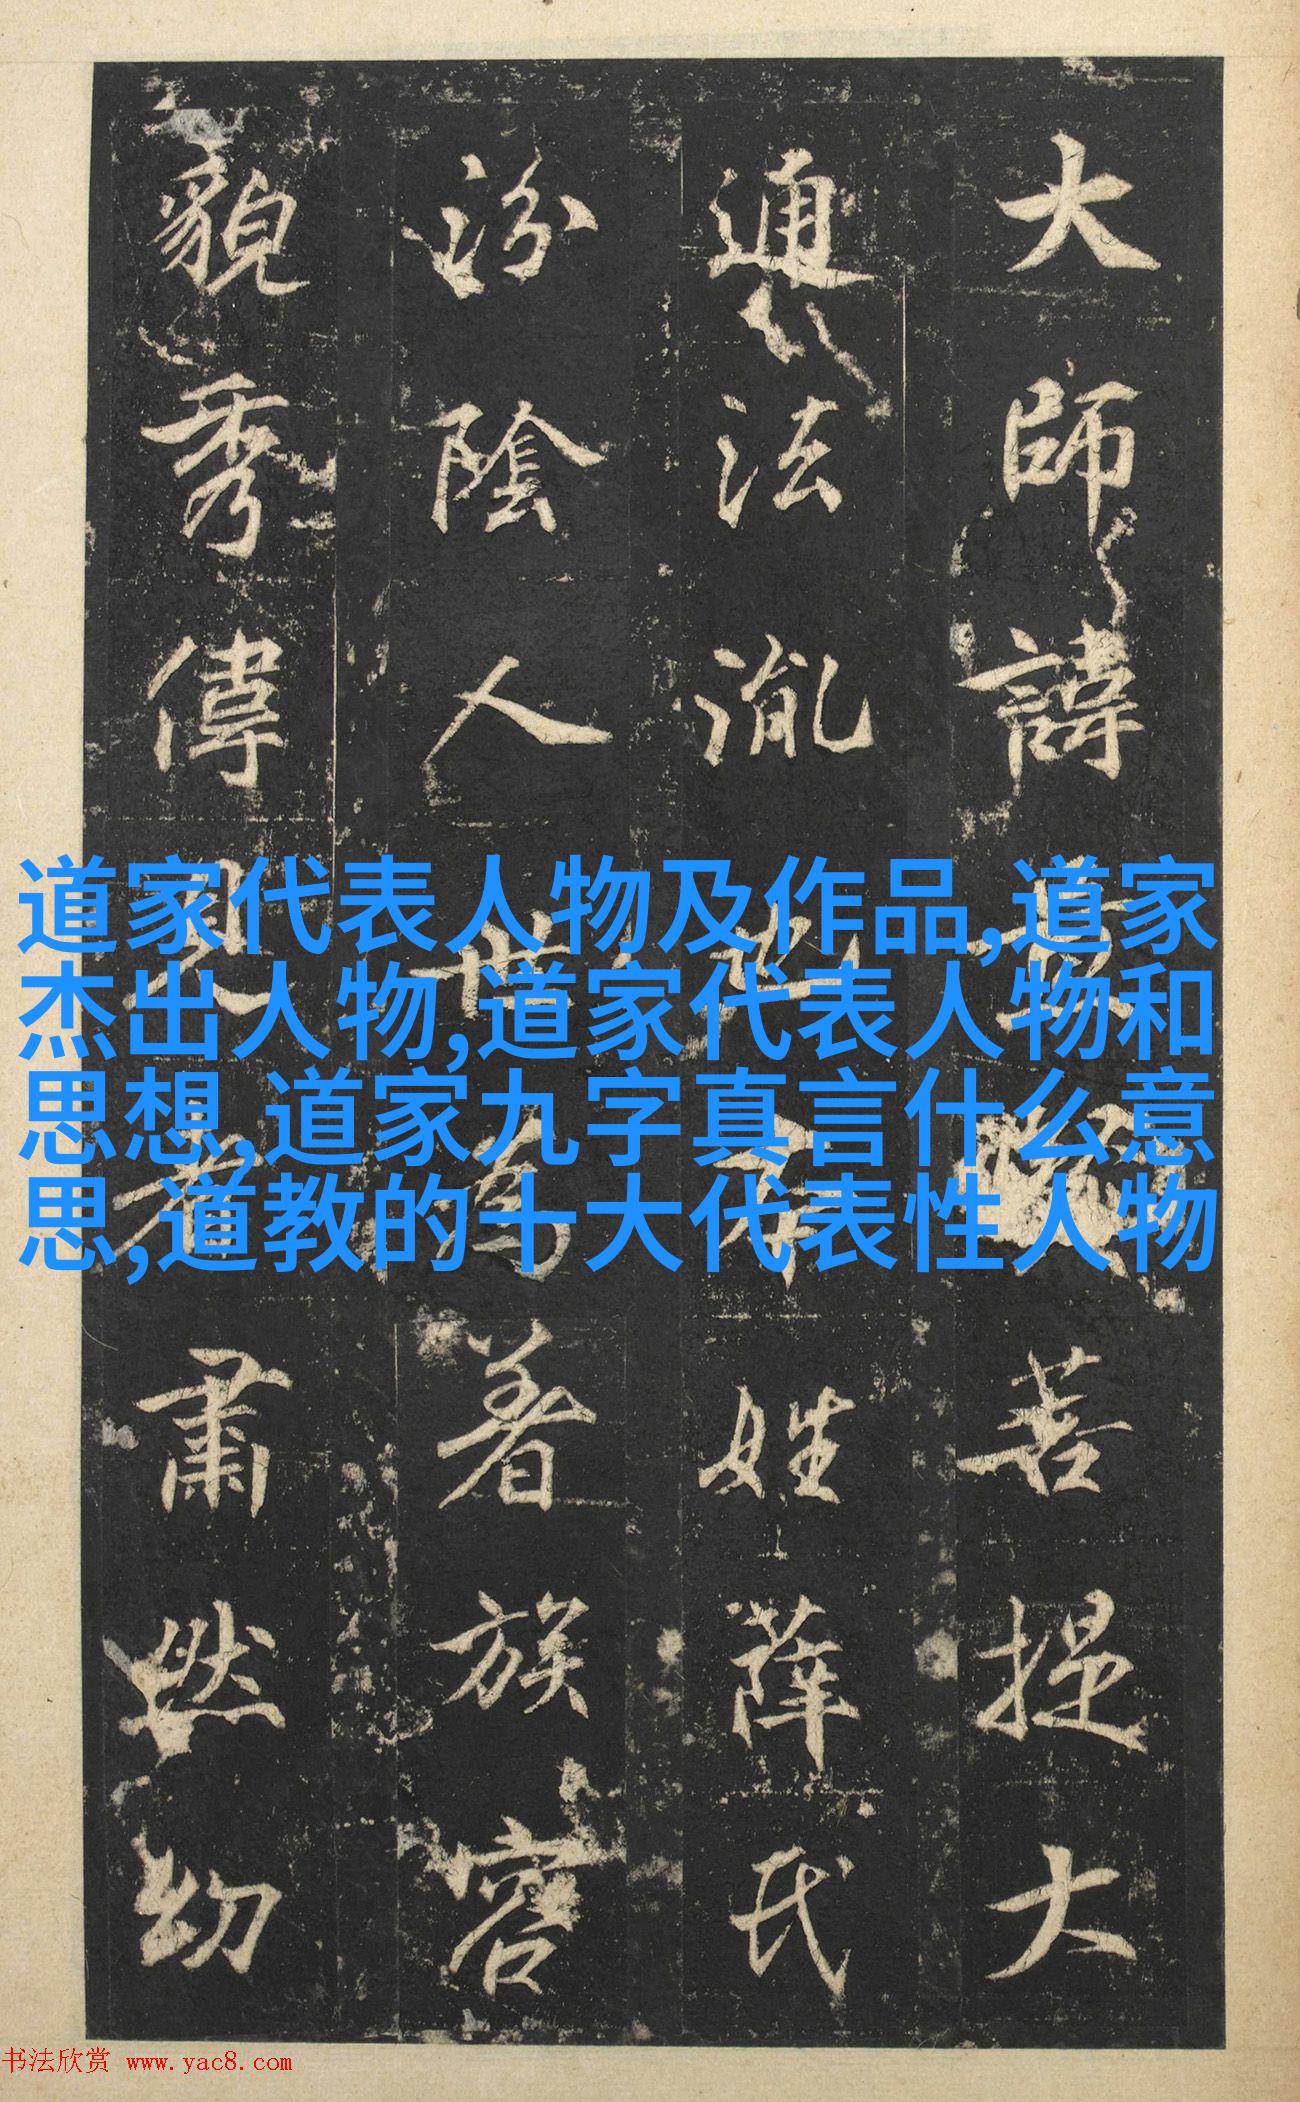 大師諱菩提大
通法胤也姓薛氏
汾陰人世為著族容
貌秀偉見者肅然幼
道家代表人物及作品,道家
杰出人物,道家代表人物和
思想,道家九字真言什么意
思,道教的十大代表性人物
书法欣赏 www.yac8.com